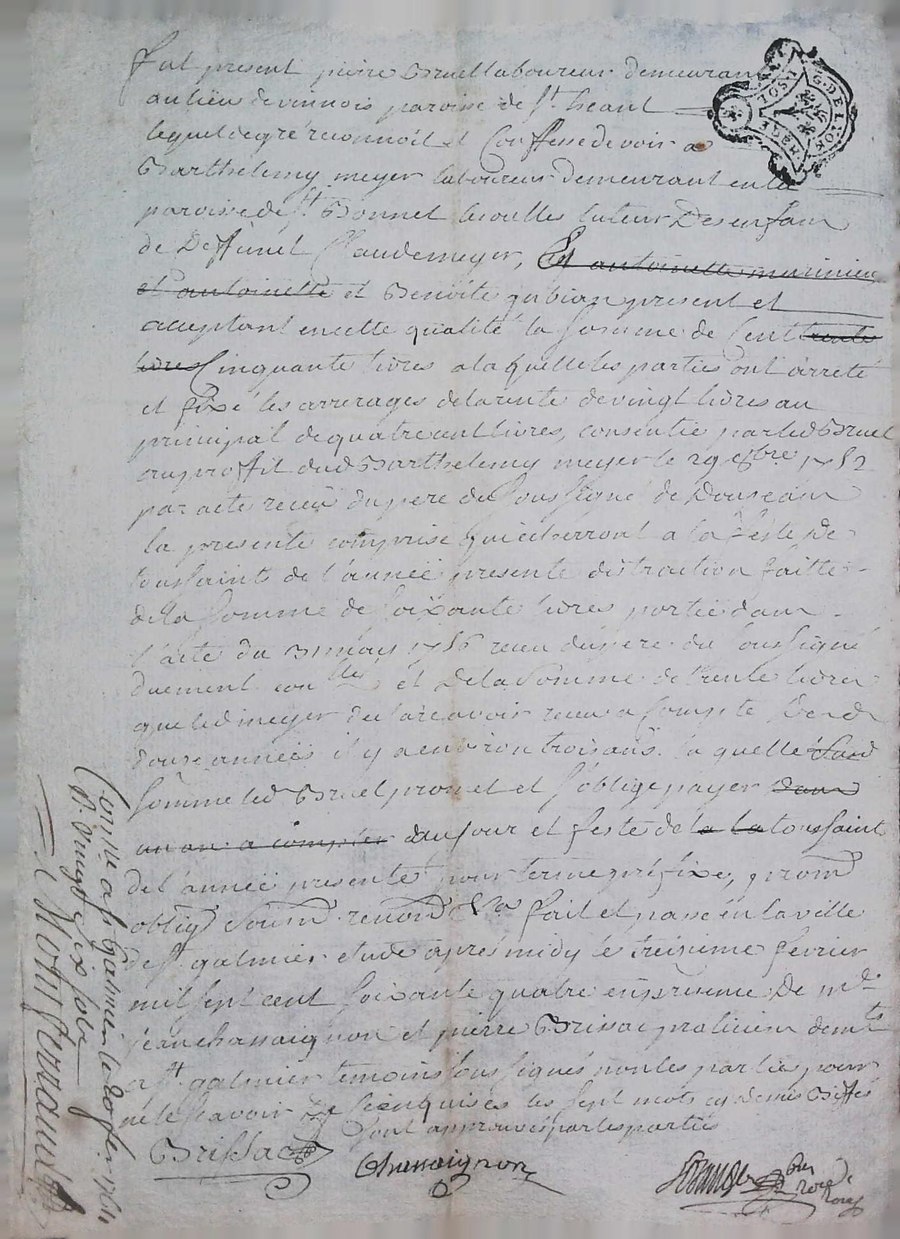 G. DE LYON
1. SOL
fut present pierre Bruel laboureur demeurant
au lieu de vinnois paroisse de St. heant
lequel de gré reconnoit et Confesse devoir a
Barthelemy meyer laboureur demeurant en la
paroisse de St. Bonnet lesoulles tuteur Des enfans
de Deffunct Claude meyer, Et antoinette
et antoinette et Benoite gubian present et
acceptant en cette qualité la somme de Cent trente
livres Cinquante livres a laquelle les parties ont arreté
et fixé les arrerages de la rente de vingt livres au
principal de quatre cent livres, consentie par led Bruel
au proffit dud Barthelemy meyer le 29 8bre 1752
par acte receu du pere du soussigné de
la presente comprise qui echerront a la feste de
toussaints de l'année presente distraction faitte
de la somme de soixante livres portée dans
l'acte du 3 may 1756 receu du pere du soussigné
duement conllé et De la somme de trente livres
que led meyer declare avoir receu a compte Desd
douze années il y a environ trois ans. laquelle
somme led Bruel promet et s'oblige payer dans
un an a compter au jour et feste de la toussaint
de l'année presente pour terme prefixe, prom
oblig soum renon &a fait et passé en la ville
de St. galmier etude apres midy le treisieme fevrier
mil sept cent soixante quatre en presence De mre
jean chassaignon et pierre Brissac praticien demts
a St. galmier temoins soussignés non les parties pour
ne le scavoir De ce enquises les sept mots cy dessus Biffés
sont approuvés par les parties
Brissac
Chassaignon
nore
roial
Conllé a St Galmier le 20 fer. 1764
R. vingt six sols